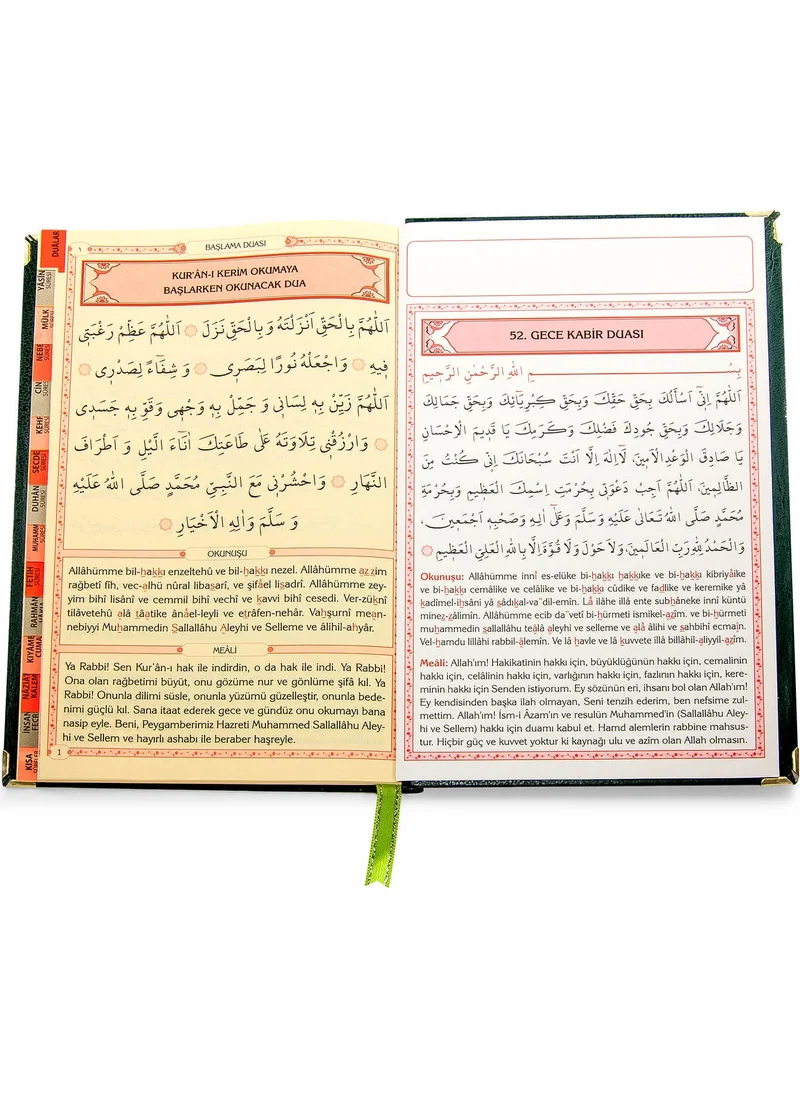 DUÂLAR
YÂSÎN
SÛRESİ
MÜLK
NEBE
SÛRESİ
CİN
SÛRESİ
KEHF
SÛRESİ
SECDE
SÛRESİ
DUHÂN
SÛRESİ
MUHAMM
FETİH
SÛRESİ
RAHMÂN
KIYÂME
CUMA
NÂZİÂT
KALEM
İNSAN
FECR
KISA
SÛRELER
١
BAŞLAMA DUASI
KUR'ÂN-I KERİM OKUMAYA
BAŞLARKEN OKUNACAK DUA
اَللّٰهُمَّ بِالْحَقِّ اَنْزَلْتَهُ وَبِالْحَقِّ نَزَلَ ۞ اَللّٰهُمَّ عَظِّمْ رَغْبَتٖى
فٖيهِ ۞ وَاجْعَلْهُ نُورًا لِبَصَرٖى ۞ وَ شِفَٓاءً لِصَدْرٖى ۞
اَللّٰهُمَّ زَيِّنْ بِهٖ لِسَانٖى وَ جَمِّلْ بِهٖ وَجْهٖى وَقَوِّ بِهٖ جَسَدٖى
۞ وَارْزُقْنٖى تِلَاوَتَهُ عَلٰى طَاعَتِكَ اٰنَٓاءَ الَّيْلِ وَ اَطْرَافَ
النَّهَارِ ۞ وَاحْشُرْنٖى مَعَ النَّبِيِّ مُحَمَّدٍ صَلَّى اللّٰهُ عَلَيْهِ
وَ سَلَّمَ وَاٰلِهِ الْاَخْيَارِ ۞
OKUNUŞU
Allâhümme bil-hakkı enzeltehû ve bil-hakkı nezel. Allâhümme azzim
rağbetî fîh, vec-alhü nûral libasarî, ve şifâel lisadrî. Allâhümme zey-
yim bihî lisânî ve cemmil bihî vechî ve kavvi bihî cesedî. Ver-züknî
tilâvetehû alâ tâatike ânâel-leyli ve etrâfen-nehar. Vahşurnî mean-
nebiyyi Muhammedin Sallallâhu Aleyhi ve Selleme ve âlihil-ahyâr.
MEÂLİ
Ya Rabbi! Sen Kur'ân-ı hak ile indirdin, o da hak ile indi. Ya Rabbi!
Ona olan rağbetimi büyüt, onu gözüme nur ve gönlüme şifâ kıl. Ya
Rabbi! Onunla dilimi süsle, onunla yüzümü güzelleştir, onunla bede-
nimi güçlü kıl. Sana itaat ederek gece ve gündüz onu okumayı bana
nasip eyle. Beni, Peygamberimiz Hazreti Muhammed Sallallâhu Aley-
hi ve Sellem ve hayırlı ashabı ile beraber haşreyle.
1
52. GECE KABİR DUASI
بِسْمِ اللّٰهِ الرَّحْمٰنِ الرَّحٖيمِ
اَللّٰهُمَّ اِنّٖٓى اَسْاَلُكَ بِحَقِّ حَقِّكَ وَبِحَقِّ كِبْرِيَٓائِكَ وَبِحَقِّ جَمَالِكَ
وَجَلَالِكَ وَبِحَقِّ جُودِكَ فَضْلِكَ وَكَرَمِكَ يَا قَدٖيمَ الْاِحْسَانِ
يَا صَادِقَ الْوَعْدِ الْاَمٖينَ، لَٓا اِلٰهَ اِلَّٓا اَنْتَ سُبْحَانَكَ اِنّٖى كُنْتُ مِنَ
الظَّالِمٖينَ، اَللّٰهُمَّ اَجِبْ دَعْوَتٖى بِحُرْمَتِ اِسْمِكَ الْعَظٖيمِ وَبِحُرْمَةِ
مُحَمَّدٍ صَلَّى اللّٰهُ تَعَالٰى عَلَيْهِ وَسَلَّمَ وَعَلٰٓى اٰلِهٖ وَصَحْبِهٖٓ اَجْمَعٖينَ،
وَالْحَمْدُ لِلّٰهِ رَبِّ الْعَالَمٖينَ، وَلَا حَوْلَ وَلَا قُوَّةَ اِلَّا بِاللّٰهِ الْعَلِيِّ الْعَظٖيمِ ۞
Okunuşu: Allâhümme innî es-elüke bi-hakkı hakkıke ve bi-hakkı kibriyâike
ve bi-hakkı cemâlike ve celâlike ve bi-hakkı cûdike ve fadlike ve keremike yâ
kadîmel-ihsâni yâ sâdıkal-va'dil-emîn. Lâ ilâhe illâ ente subhâneke innî küntü
minez-zâlimîn. Allâhümme ecib da'vetî bi-hürmeti ismikel-azîm. ve bi-hürmeti
muhammedin sallallâhu teâlâ aleyhi ve selleme ve alâ âlihi ve sahbihî ecmaîn.
Vel-hamdu lillâhi rabbil-âlemîn. Ve lâ havle ve lâ kuvvete illâ billâhil-aliyyil-azîm.
Meâli: Allah'ım! Hakikatinin hakkı için, büyüklüğünün hakkı için, cemalinin
hakkı için, celâlinin hakkı için, varlığının hakkı için, fazlının hakkı için, kere-
minin hakkı için Senden istiyorum. Ey sözünün eri, ihsanı bol olan Allah'ım!
Ey kendisinden başka ilah olmayan, Seni tenzih ederim, ben nefsime zul-
mettim. Allah'ım! İsm-i Âzam'ın ve resulün Muhammed'in (Sallallâhu Aley-
hi ve Sellem) hakkı için duamı kabul et. Hamd alemlerin rabbine mahsus-
tur. Hiçbir güç ve kuvvet yoktur ki kaynağı ulu ve azîm olan Allah olmasın.